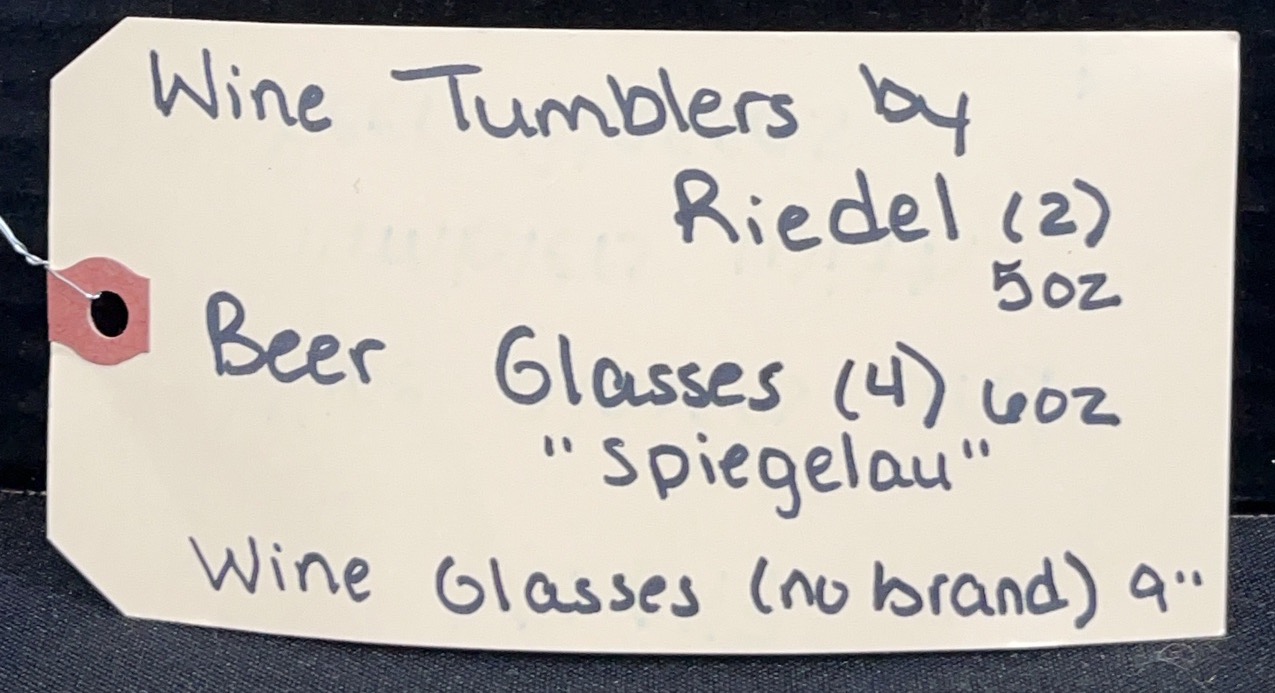 Wine Tumblers by
Riedel (2)
5oz
Beer Glasses (4) 6oz
"Spiegelau"
Wine Glasses (no brand) 9"